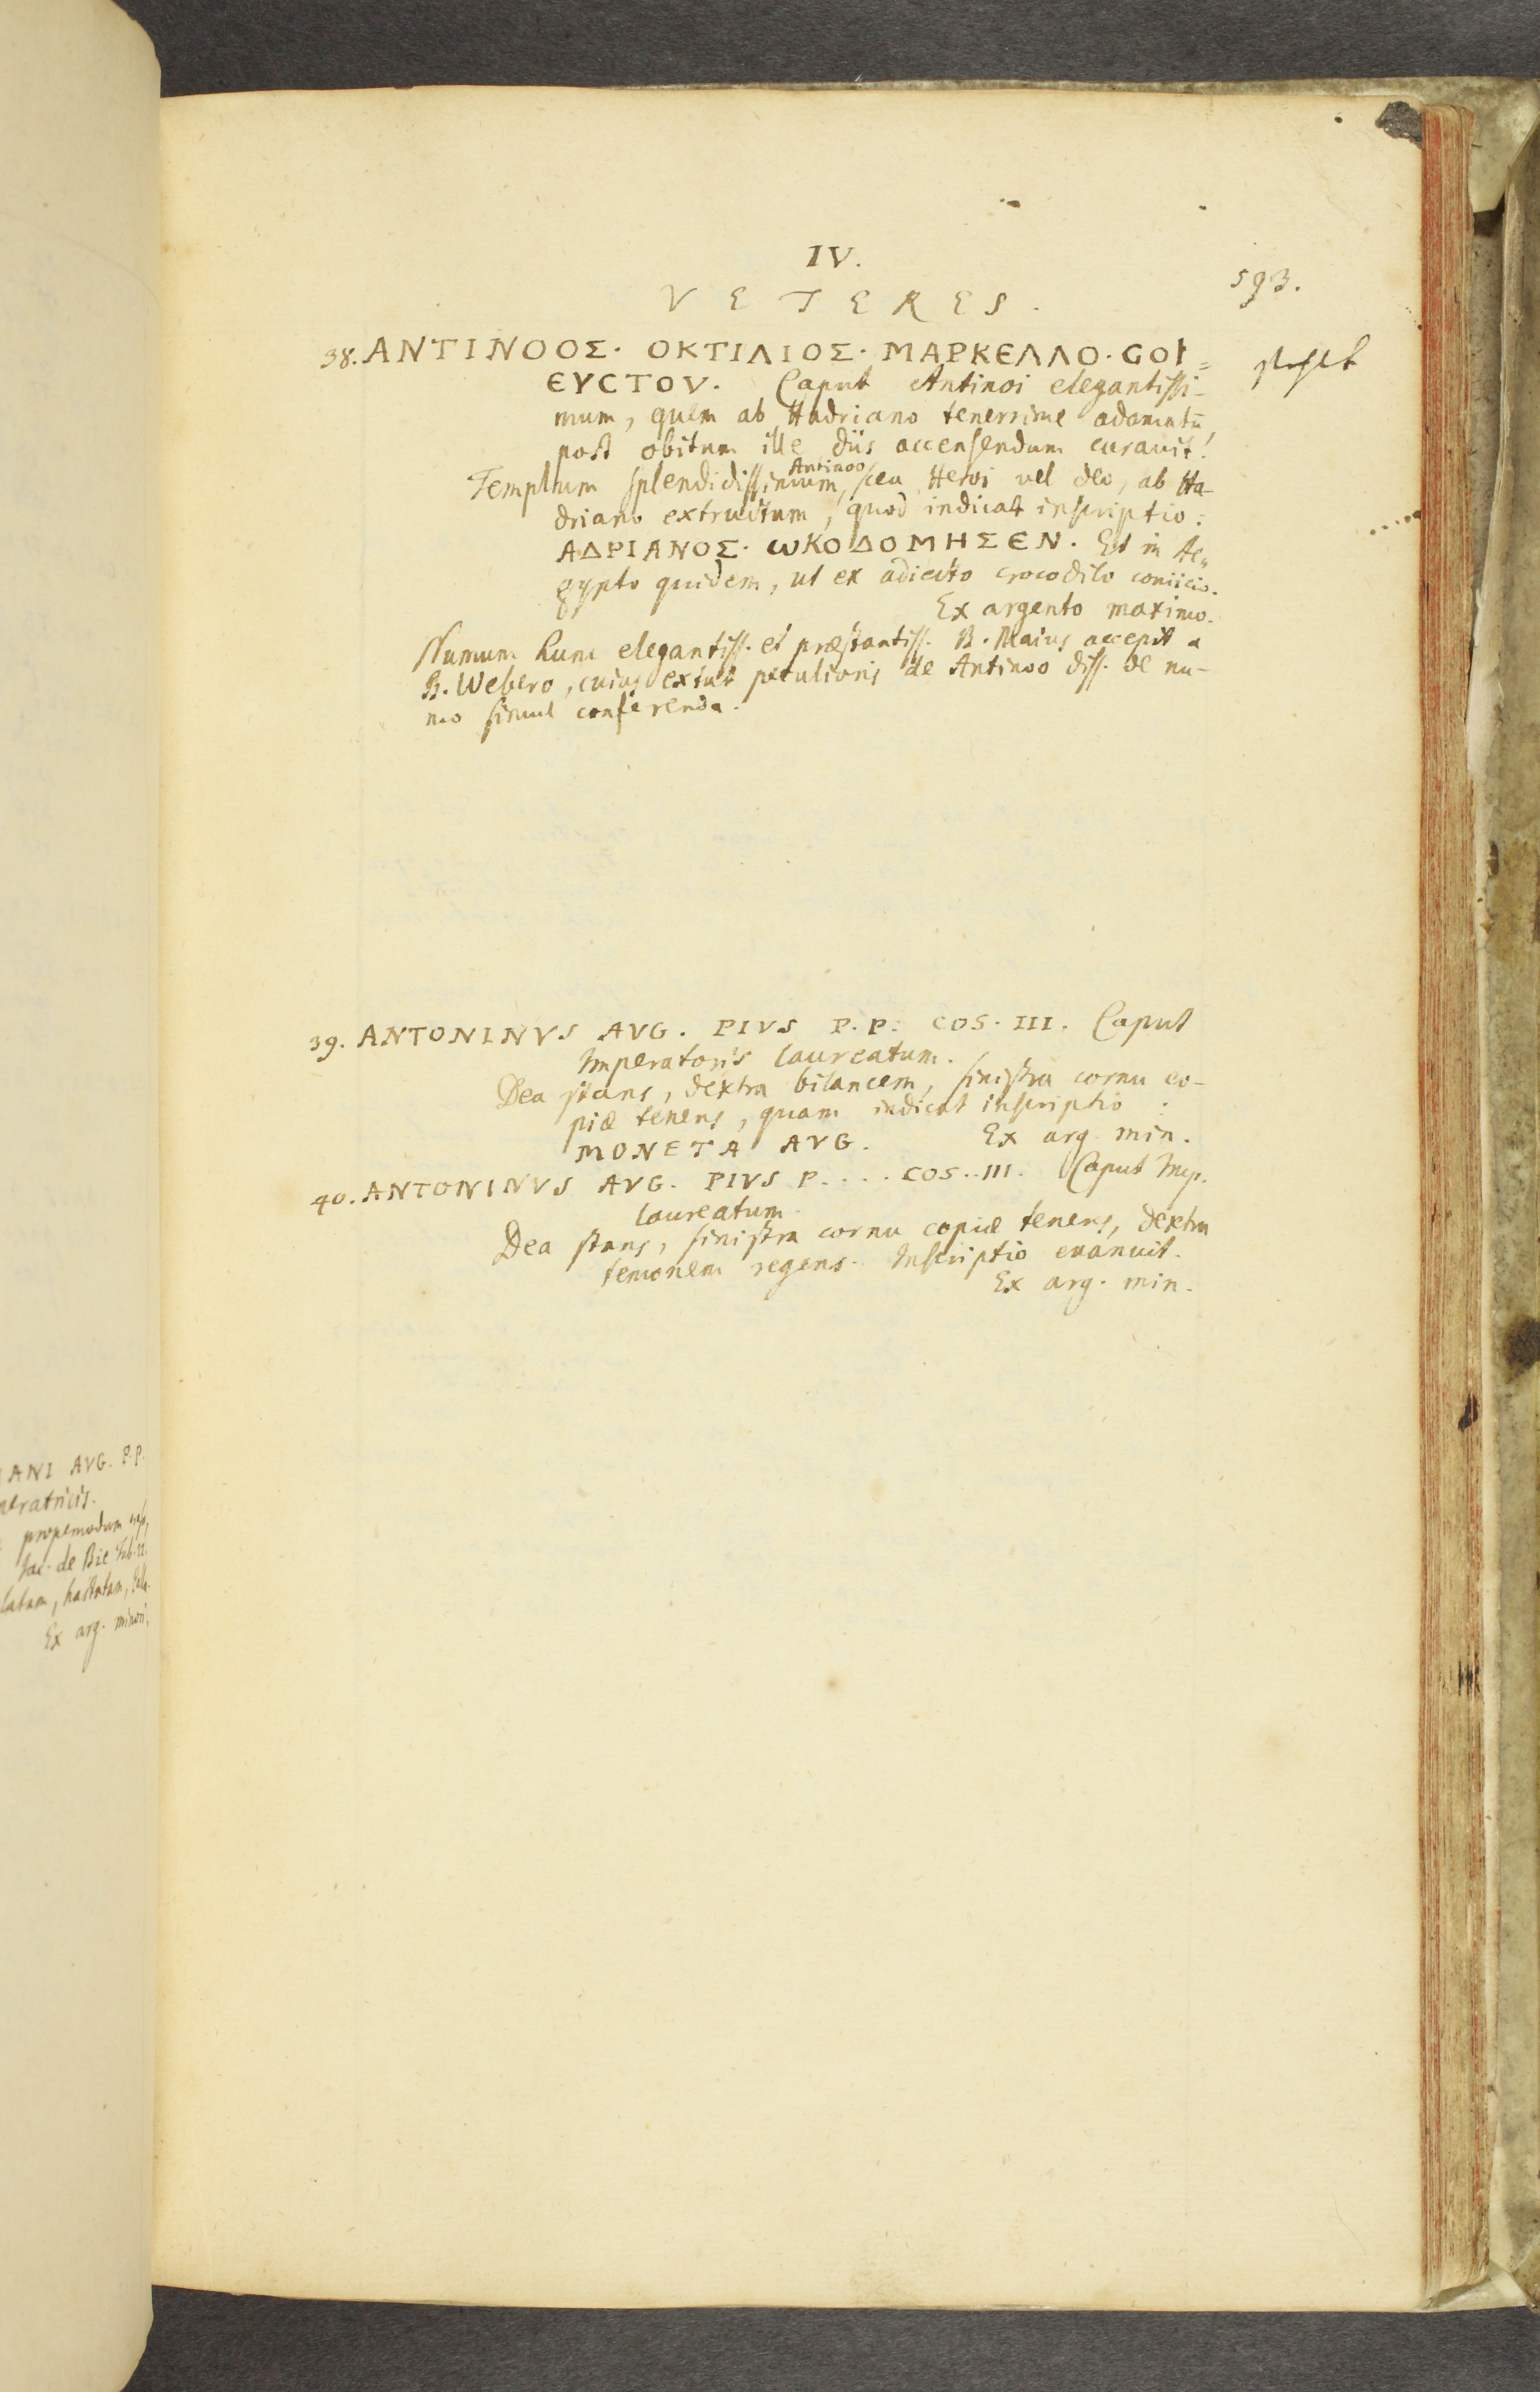 IV.
593.
VETERES.
38. ΑΝΤΙΝΟΟΣ· ΟΚΤΙΛΙΟΣ· ΜΑΡΚΕΛΛΟ· GOI=
ЄΥCΤΟV. Caput Antinoi elegantissi-
mum, quem ab Hadriano tenerrime adamatū,
post obitum ille diis accensendum curavit!
Templum splendidissimum, Antinoo, seu Heroi vel deo, ab Ha-
driano extructum, quod indicat inscriptio:
ΑΔΡΙΑΝΟΣ· ωΚΟΔΟΜΗΣЄΝ. Et in Ae„
gypto quidem, ut ex adiecto crocodilo coniicio.
Ex argento maximo.
Numum hunc elegantiss. et præstantiss. B. Maius accepit a
B. Webero, cuius extat peculiaris de Antinoo diss. de nu-
mo simul conferenda.
39. ANTONINVS AVG. PIVS P. P. COS. III. Caput
Imperatoris laureatum.
Dea stans, dextra bilancem, sinistra cornu co-
piæ tenens, quam indicat inscriptio:
MONETA AVG. Ex arg. min.
40. ANTONINVS AVG. PIVS P. . . . COS..III. Caput Imp.
laureatum.
Dea stans, sinistra cornu copiæ tenens, dextra
temonem regens. Inscriptio evanuit.
Ex arg. min.
ANI AVG. P.P.
neratricis.
propemodum
Jac. de Bie Tab. 22.
latam, hastatam,
Ex arg. minori,